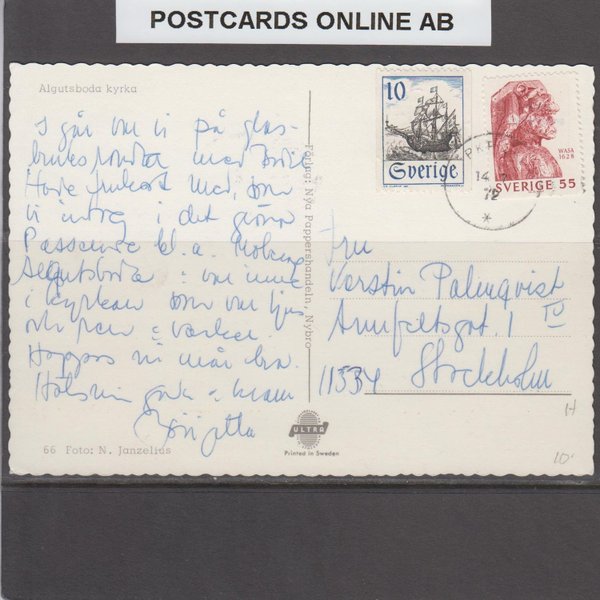 POSTCARDS ONLINE AB
Algutsboda kyrka
I går var vi på glas-
bruksrondta med
Hade med, som
vi i det gröna
Passerade bl. a. Moberg
Algutsboda : var inne
i kyrkan som var ljus
och ren : vacker.
Hoppas ni mår bra.
Hälsningar : kram
Birgitta
66 Foto: N. Janzelius
Förlag: Nya Pappershandeln, Nybro
ULTRA
Printed in Sweden
10
Sverige
WASA
1628
SVERIGE 55
PKP
14
72
Fru
Kerstin Palmqvist
Armfeltsgat. 1
11534 Stockholm
H
10: